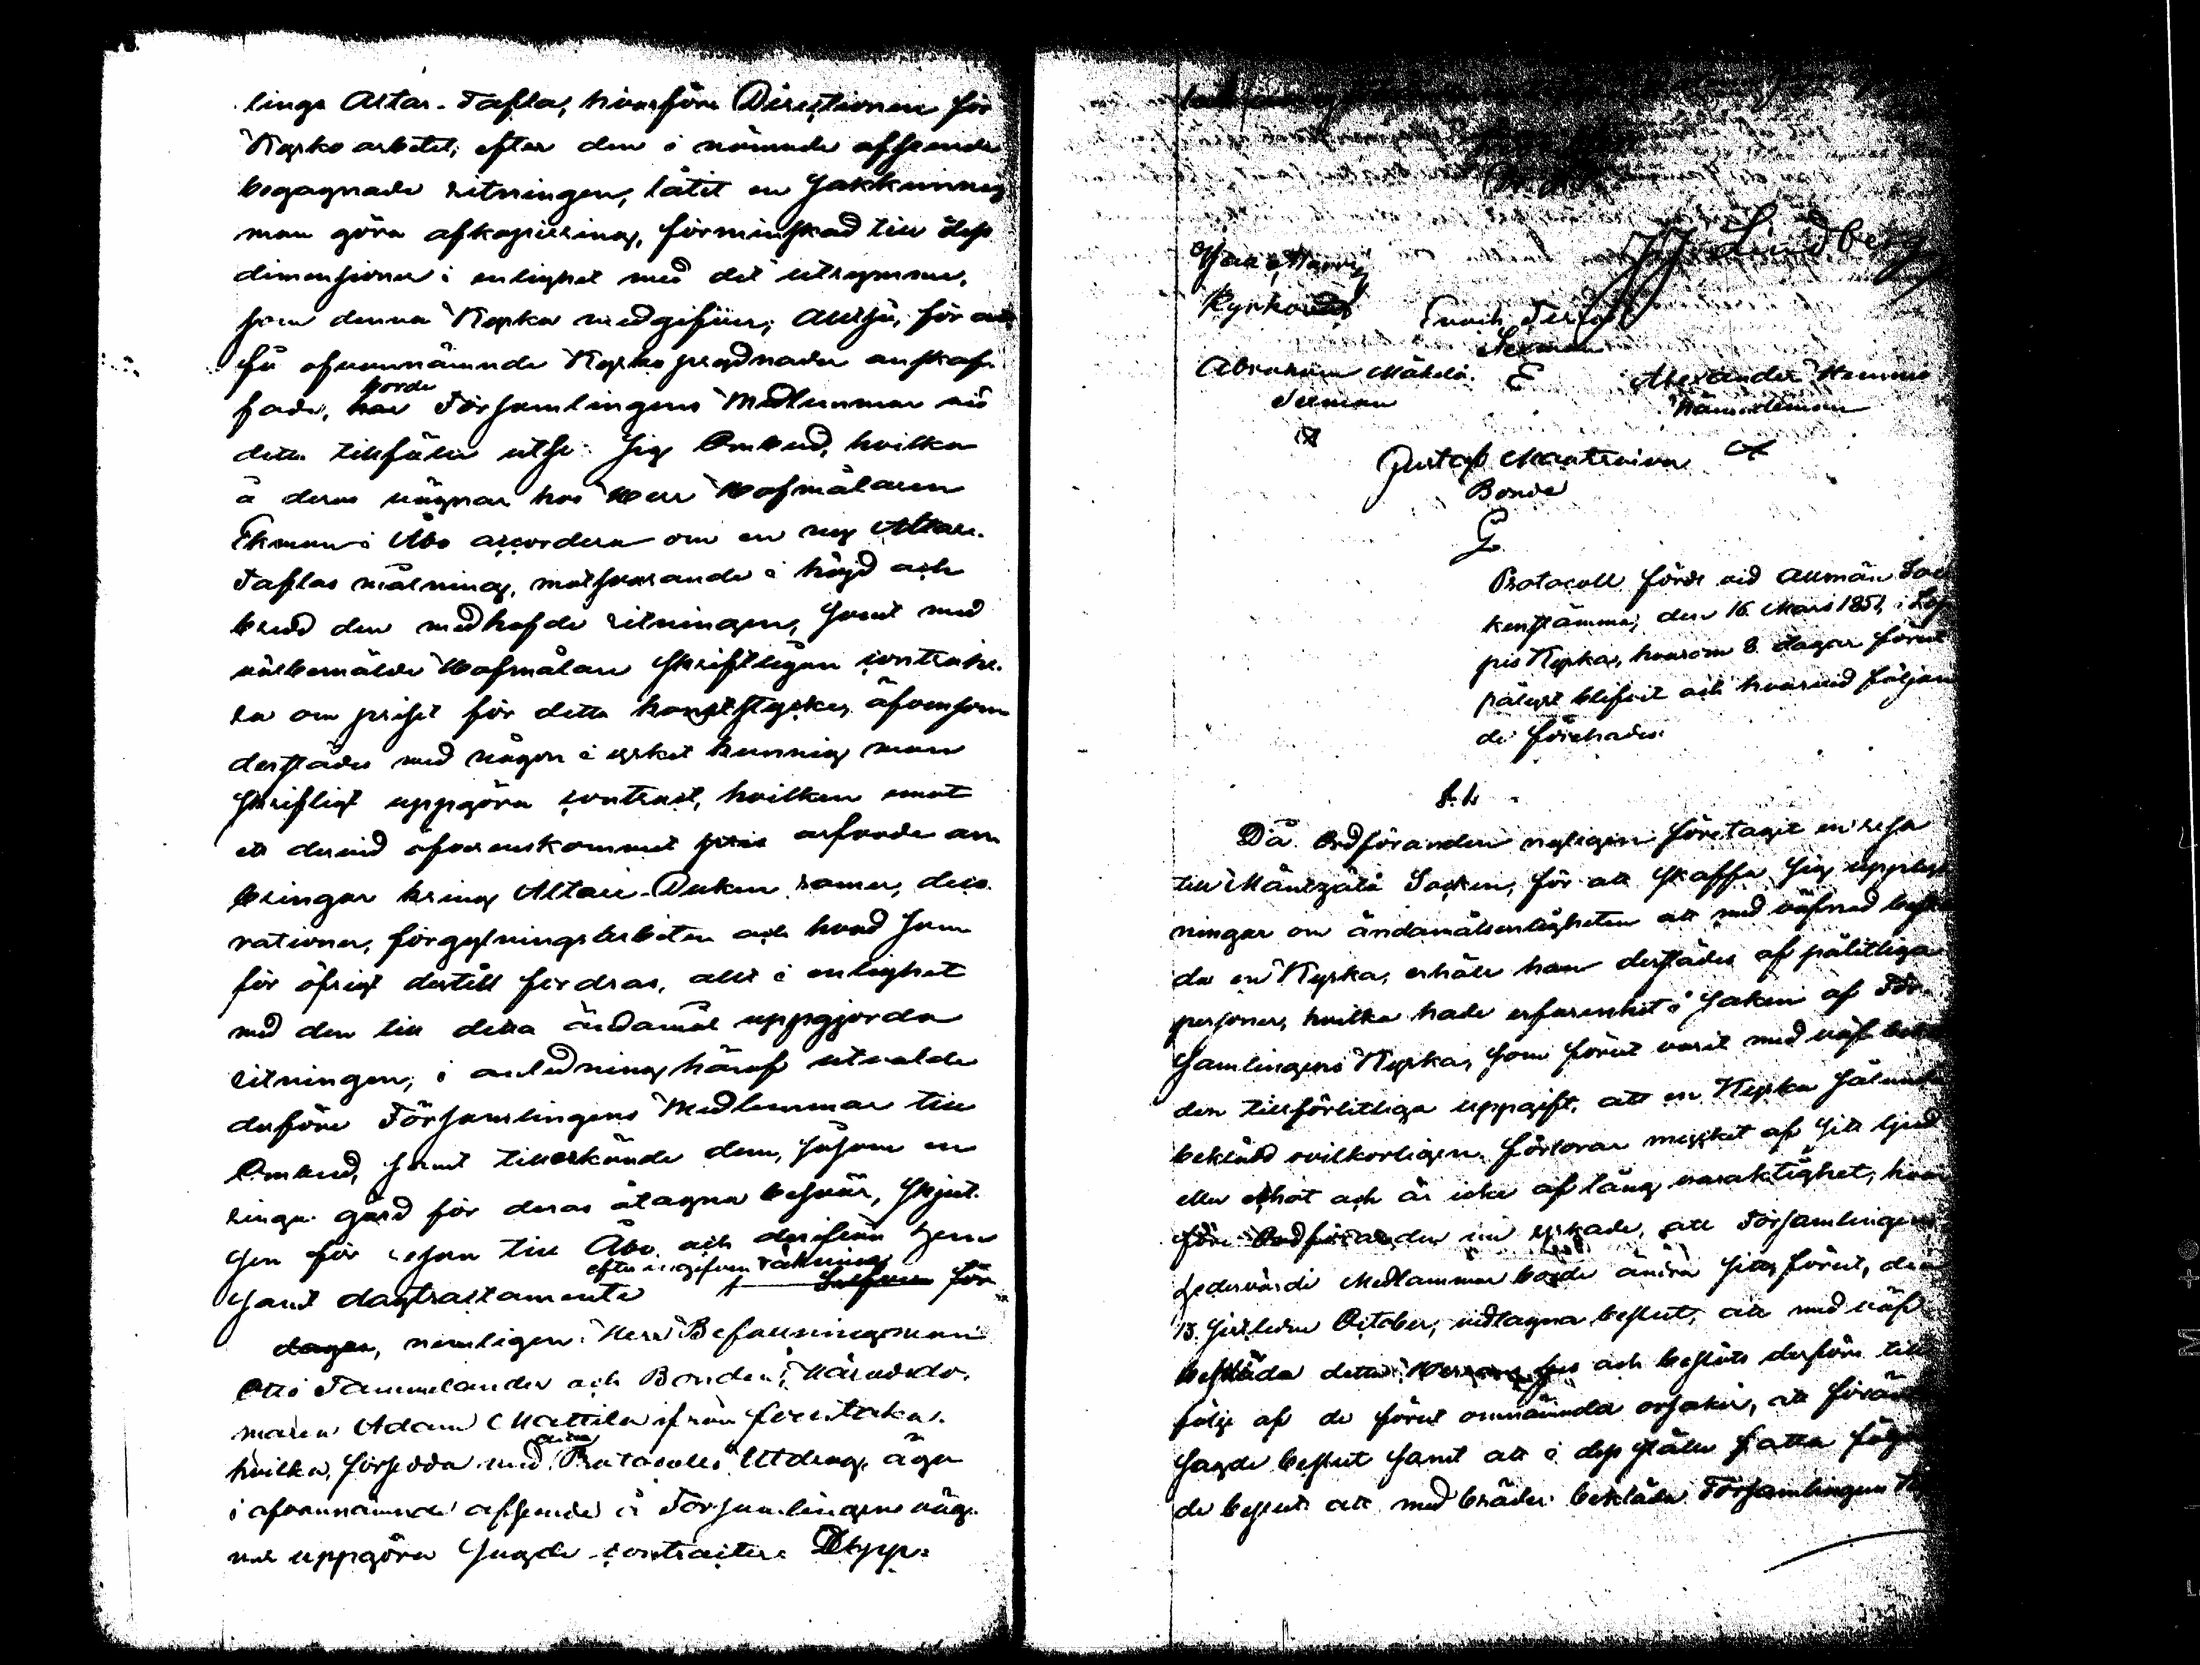 linga Altar-Tafla, hvarföre Directionen för
Kyrko arbetet, efter den i nämnde afseende
begagnade ritningen, låtit en sakkunnig
man göra afkopiering, förminskad till dess
dimensioner i enlighet med det utrymme,
som denna Kyrka medgifver; Alltså, för att
få ofvannämnde Kyrko prydnader anskaf-
fade, har borde Församlingens Medlemmar vid
detta tillfälle utse sig Ombud, hvilka
å deras vägnar hos Herr Hofmålaren
Ekman i Åbo accordera om en ny Altare-
Taflas målning, motsvarande i höjd och
bredd den medhafde ritningen, samt med
välbemälde Hofmålare skriftligen contrahe-
ra om priset för detta konststycke, äfvensom
derstädes med någon i yrket kunnig man
skriftligt uppgöra contract, hvilken emot
ett dervid öfverenskommet pris
bringar kring Altare-Duken ramer, deco-
rationer, förgyllningsarbeten och hvad som
för öfrigt dertill fordras, allt i enlighet
med den till detta ändamål uppgjorda
ritningen, i anledning häraf utvalde
derföre Församlingens Medlemmar till
Ombud, samt tillerkände dem, såsom en
ringa gärd för deras åtagna besvär, skjut-
sen för resan till Åbo och derifrån hem
samt dagtractamente efter ingifven räkning för
dagen, nemligen: Herr Befallningsman
Otto Tammelander och Bonden, Härads do-
maren Adam Mattila ifrån
hvilka, försedda med Protocolls Utdrag, äga
i ofvannämnde afseende å Församlingens väg-
nar uppgöra sagde contracter. Dtsupp:
J J Sundberg
Kyrkovärd
Enoch
Sexman
Abraham Mäkelä
Sexman
E
Alexander Hemmi
Nämndeman
Gustaf Mantruiva
Bonde
G
Protocoll fördt vid Allmän Soc-
kenstämma, den 16 Mars 1851, i Lop-
pis Kyrka, hvarom 8 dagar förut
pålyst blifvit och hvarvid följan-
de förehades:
§. 1.
Då Ordföranden nyligen företagit en resa
till Mäntzälä Socken, för att skaffa sig upplys-
ningar om ändamålsenligheten att med väfnad beklä-
da en Kyrka, erhöll han derstädes af pålitliga
personer, hvilka hade erfarenhet i saken af För-
samlingens Kyrka, som förut varit med väf beklädd
den tillförlitliga uppgift, att en Kyrka sålunda
beklädd ovilkorligen förlorar mycket af sitt ljud
eller echot och är icke af lång varaktighet, hvar-
före Ordföranden nu yrkade, att Församlingens
hedervärde Medlemmar borde ändra sitt förut, den
13 sistledne October, vidtagna beslut, att med väf
bekläda detta Herrans hus och beslöts derföre till
följe af de förut omnämnda orsaker, att förän-
sagde beslut samt att i dess ställe fatta följan-
de beslut att med bräder bekläda Församlingens